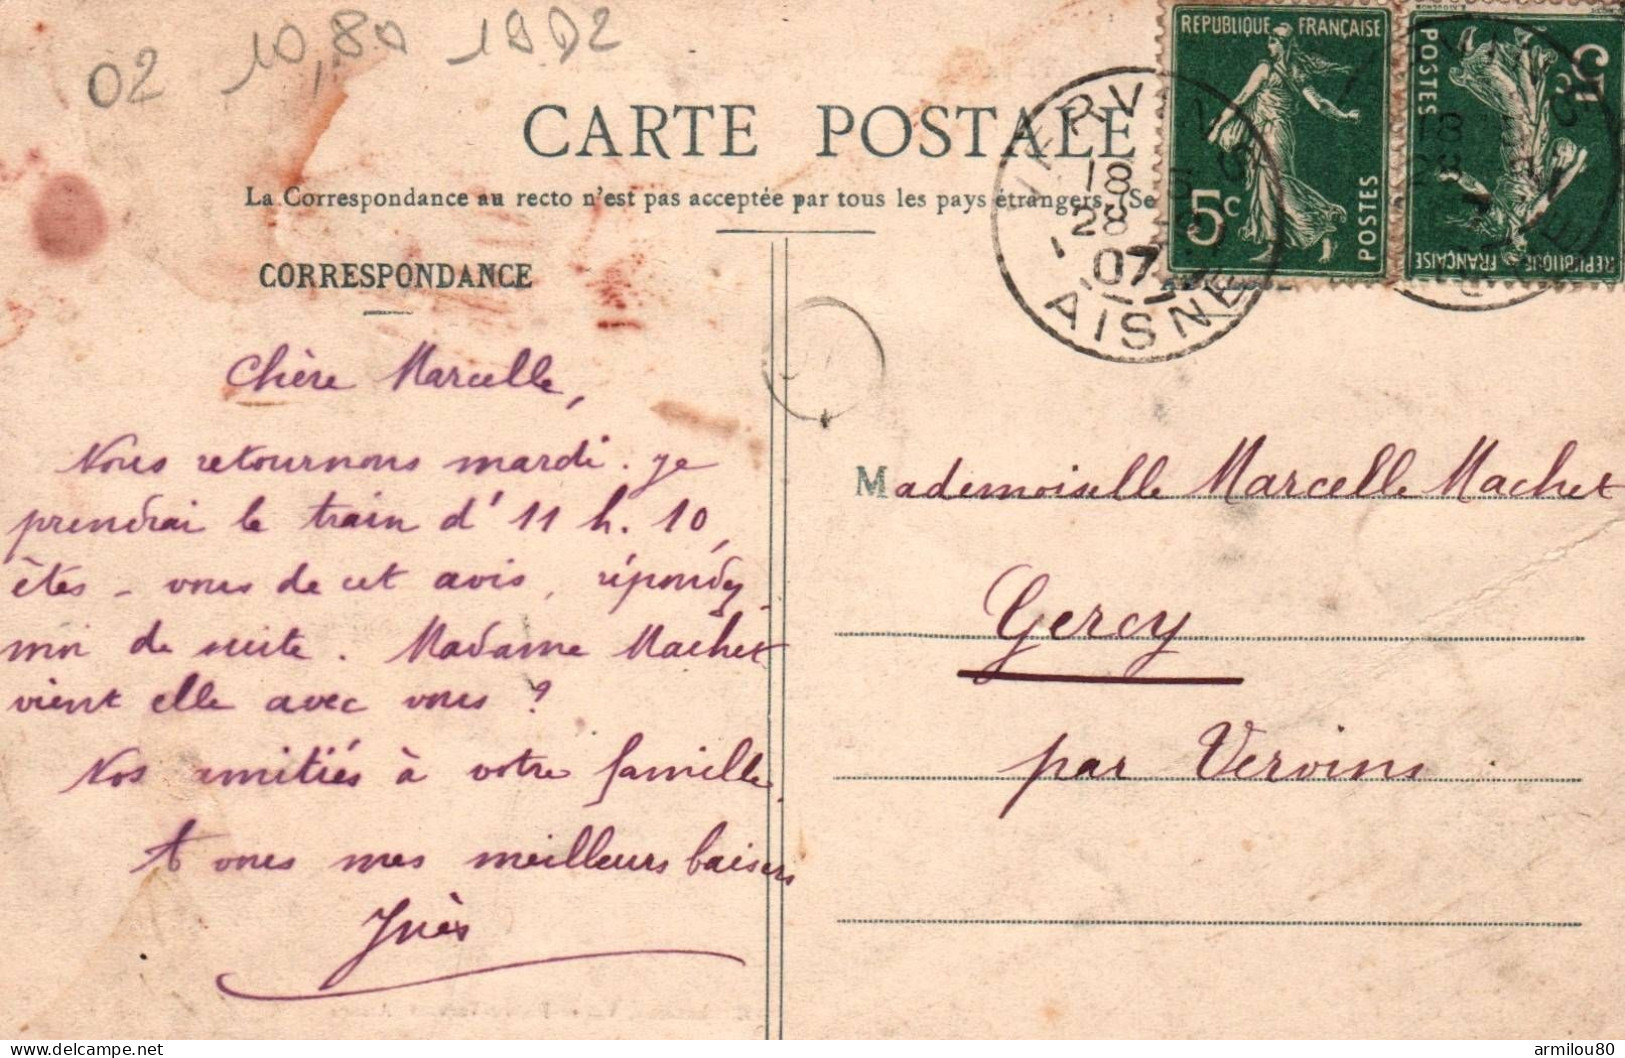 02 10,80
RÉPUBLIQUE FRANÇAISE
5c
POSTES
RÉPUBLIQUE FRANÇAISE
5c
POSTES
CARTE POSTALE
La Correspondance au recto n'est pas acceptée par tous les pays étrangers. (Se
VERVINS
18
28
07
AISNE
18
28
CORRESPONDANCE
Chère Marcelle,
Nous retournons mardi. je
prendrai le train d' 11 h. 10,
êtes-vous de cet avis, répondez
moi de suite. Madame Machet
vient elle avec vous ?
Nos amitiés à votre famille.
A vous mes meilleurs baisers
Inès
Mademoiselle Marcelle Machet
Gercy
par Vervins.
armilou80